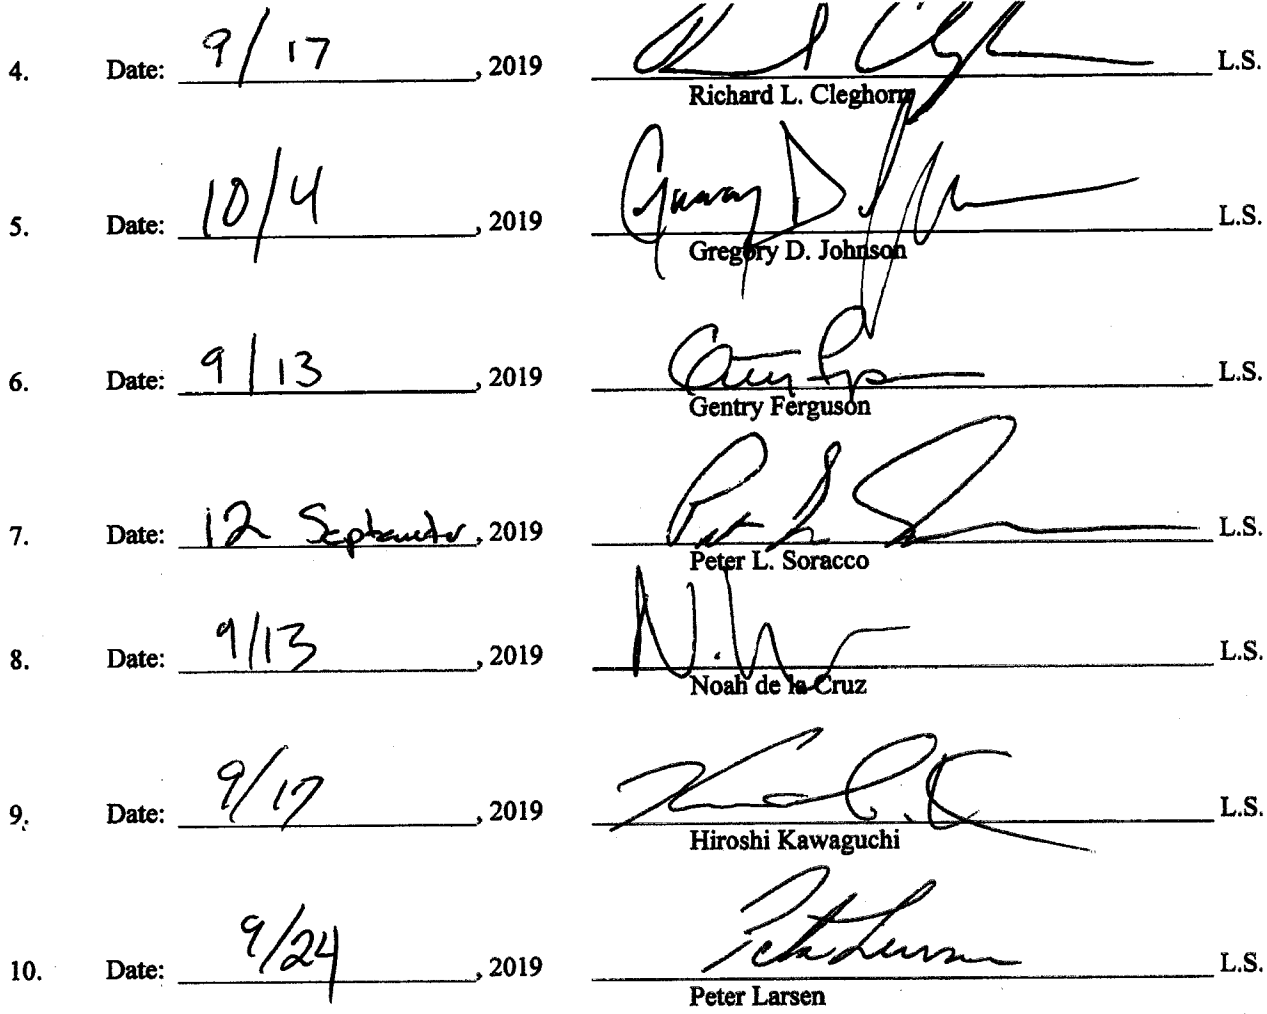 4. Date: 9/17, 2019 L.S.
Richard L. Cleghorn
5. Date: 10/4, 2019 Gregory D. L.S.
Gregory D. Johnson
6. Date: 9/13, 2019 L.S.
Gentry Ferguson
7. Date: 12 September, 2019 L.S.
Peter L. Soracco
8. Date: 9/13, 2019 L.S.
Noah de la Cruz
9. Date: 9/17, 2019 L.S.
Hiroshi Kawaguchi
10. Date: 9/24, 2019 Peter Larsen L.S.
Peter Larsen